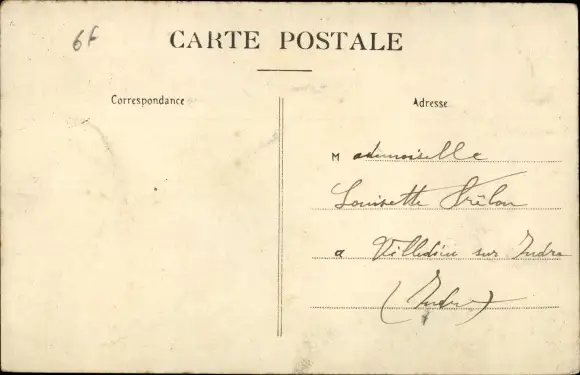 6F
CARTE POSTALE
Correspondance
Adresse
Mademoiselle
Louisette Frélon
a Villedieu sur Indre
(Indre)